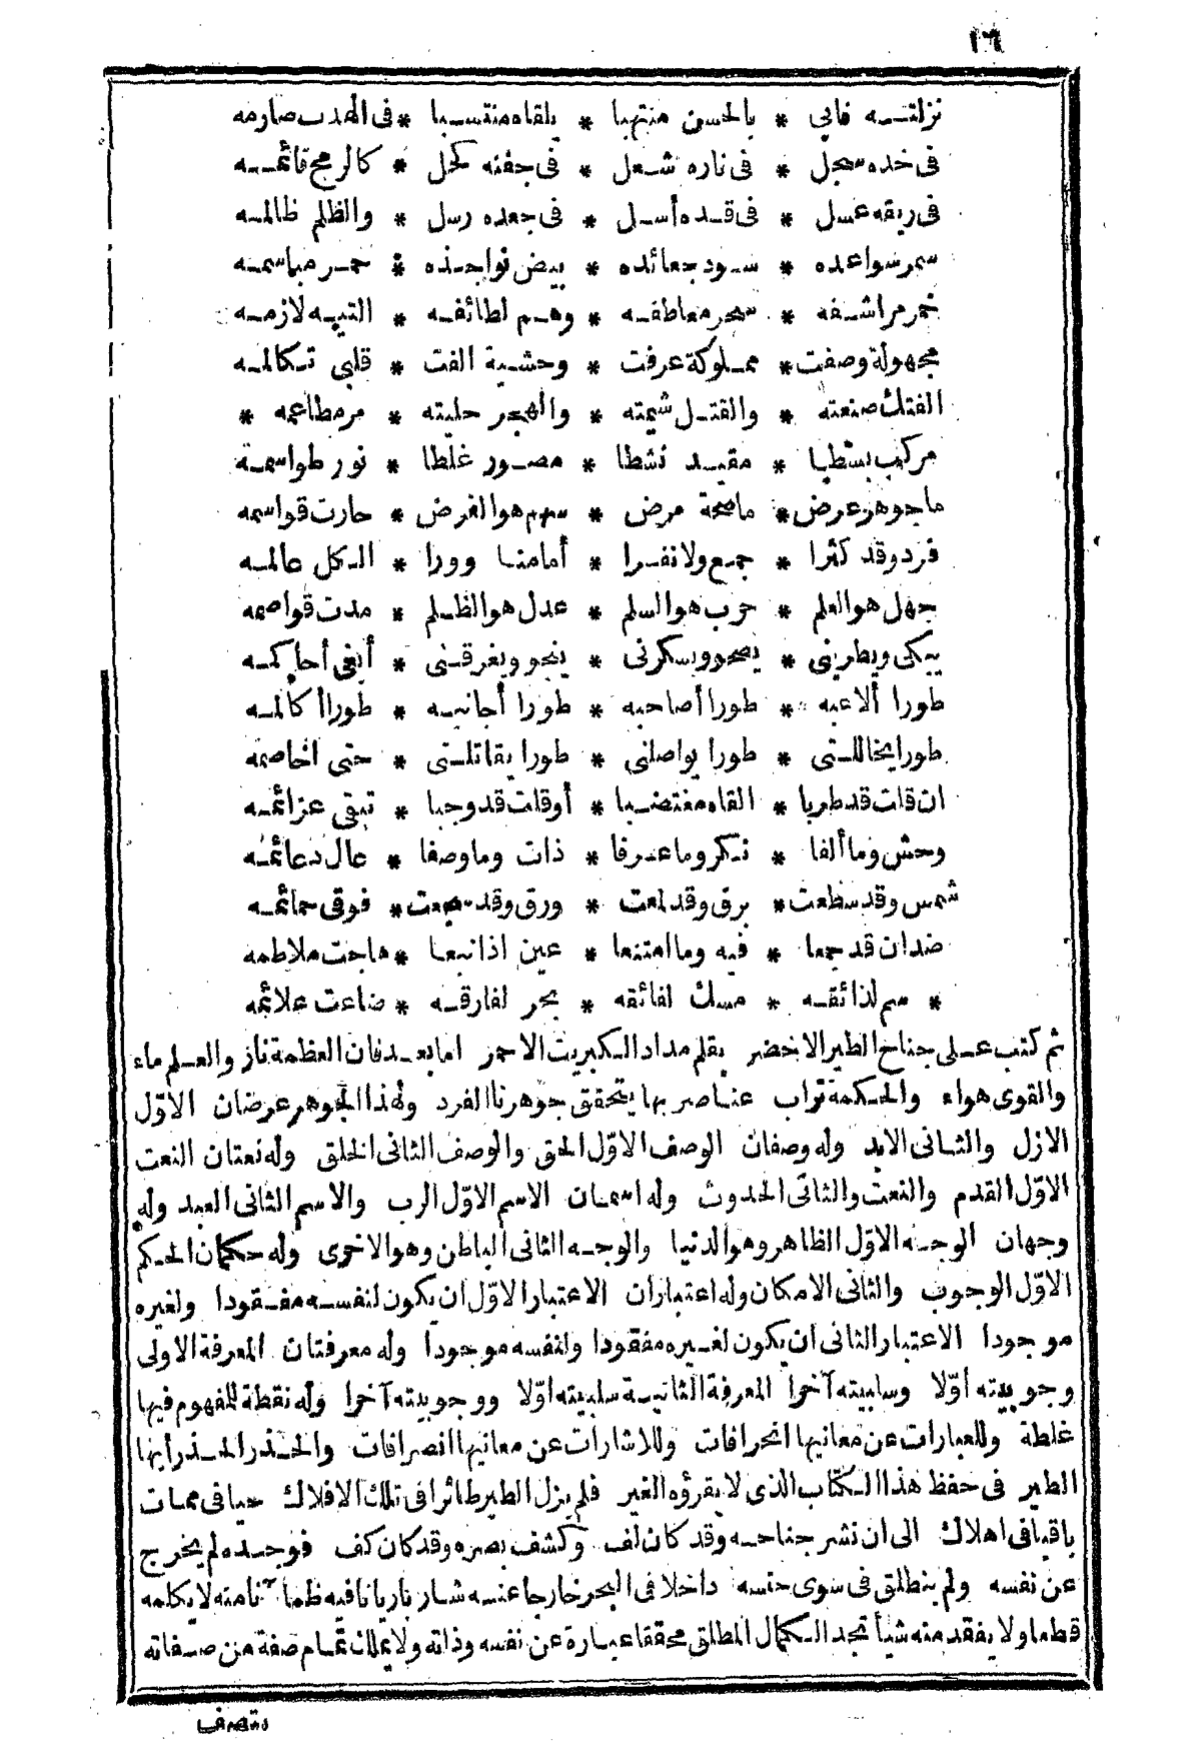 ١٦
نزلتـه فابي * بالحسن منتهبا * يلقاه منتسبا * فى الهدب صارمه
فى خده سجل * فى ناره شعل * فى جفنه كحل * كالرمح قائمه
فى ريقه عسل * فى قده أسل * فى جعده رسل * والظلم ظالمه
سمر سواعده * سود جعائده * بيض نواجذه * حمر مباسمه
خمر مراشفه * سحر معاطفه * وهم لطائفه * التيه لازمه
مجهولة وصفت * مملوكة عرفت * وحشية الفت * قلبى تكالمه
الفتك صنعته * والقتل شيمته * والهجر حليته * مر مطاعمه *
مركب بسطا * مقيد نشطا * مصور غلطا * نور طواسمه
ما جوهر عرض * ما صحة مرض * سهم هو الغرض * حارت قواسمه
فرد وقد كثرا * جمع ولا نفرا * أمامنا وورا * الكل عالمه
جهل هو العلم * حرب هو السلم * عدل هو الظلم * مدت قواصمه
يبكى ويطربنى * يصحو ويسكرنى * ينجو ويغرقنى * أبغى أحاكمه
طورا ألاعبه * طورا أصاحبه * طورا أجانبه * طورا أكالمه
طورا يخاللنى * طورا يواصلنى * طورا يقاتلنى * حتى اخاصمه
ان قلت قد طربا * القاه مغتضبا * أو قلت قد وجبا * تبقى عزائمه
وحش وما ألفا * نكر وما عرفا * ذات وما وصفا * عال دعائمه
شمس وقد سطعت * برق وقد لمعت * ورق وقد سجعت * فوقى حمائمه
ضدان قد جمعا * فيه وما امتنعا * عين اذا نبعا * هاجت ملاطمه
* سم لذائقه * مسك لفائقه * بحر لفارقه * ضاعت علائمه
ثم كتب على جناح الطير الاخضر بقلم مداد الكبريت الاحمر اما بعد فان العظمة نار والعلم ماء
والقوى هواء والحكمة تراب عناصر بها يتحقق جوهرنا الفرد ولهذا الجوهر عرضان الاوّل
الازل والثانى الابد وله وصفان الوصف الاوّل الحق والوصف الثانى الخلق وله نعتان النعت
الاوّل القدم والنعت والثانى الحدوث وله اسمان الاسم الاوّل الرب والاسم الثانى العبد وله
وجهان الوجه الاوّل الظاهر وهو الدنيا والوجه الثانى الباطن وهو الاخرى وله حكمان الحكم
الاوّل الوجوب والثانى الامكان وله اعتباران الاعتبار الاوّل ان يكون لنفسه مفقودا ولغيره
موجودا الاعتبار الثانى ان يكون لغيره مفقودا ولنفسه موجودا وله معرفتان المعرفة الاولى
وجوبيته اوّلا وسلبيته آخرا المعرفة الثانية سلبيته اوّلا ووجوبيته آخرا وله نقطة للمفهوم فيها
غلطة وللعبارات عن معانيها انحرافات وللاشارات عن معانيها انصرافات والحذر الحذر أيها
الطير فى حفظ هذا الكتاب الذى لا يقرؤه الغير فلم يزل الطير طائرا فى تلك الافلاك حيا فى ممات
باقيا فى اهلاك الى ان نشر جناحه وقد كان لف وكشف بصره وقد كان كف فوجده لم يخرج
عن نفسه ولم ينطلق فى سوى جنسه داخلا فى البحر خارجا عنه شاربا ريانا فيه ظمآنا منه لا يكلمه
قطعا ولا يفقد منه شيأ تجد الكمال المطلق محققا عبارة عن نفسه وذاته ولا يملك تمام صفة من صفاته
يتصف